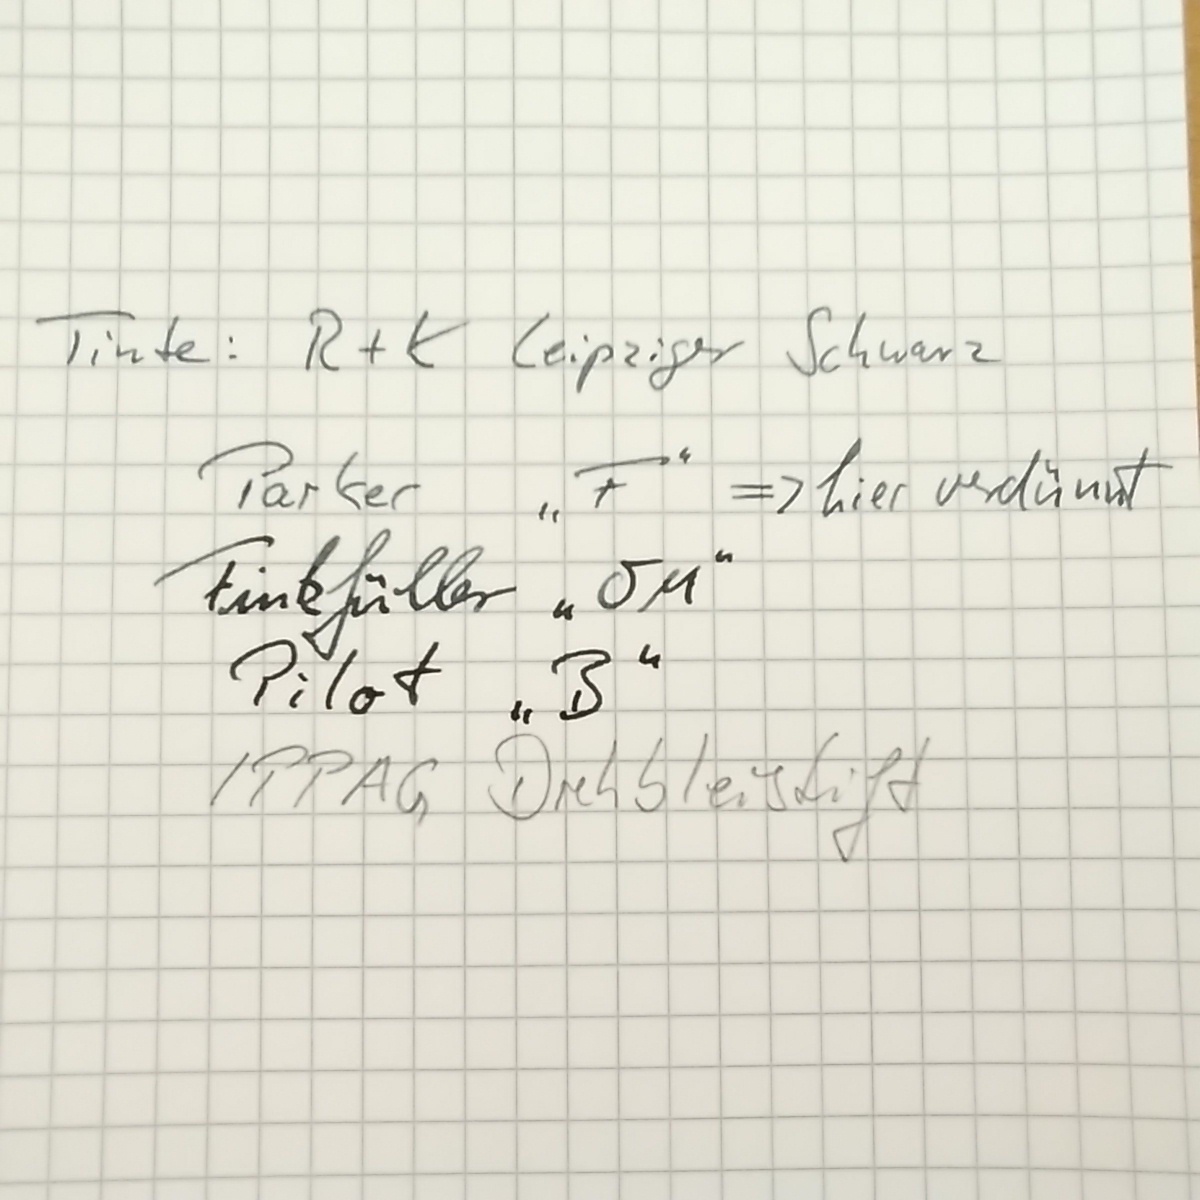 Tinte: R+K Leipziger Schwarz
Parker „F“ => hier verdünnt
Finkfüller „OM“
Pilot „B“
IPPAG Drehbleistift